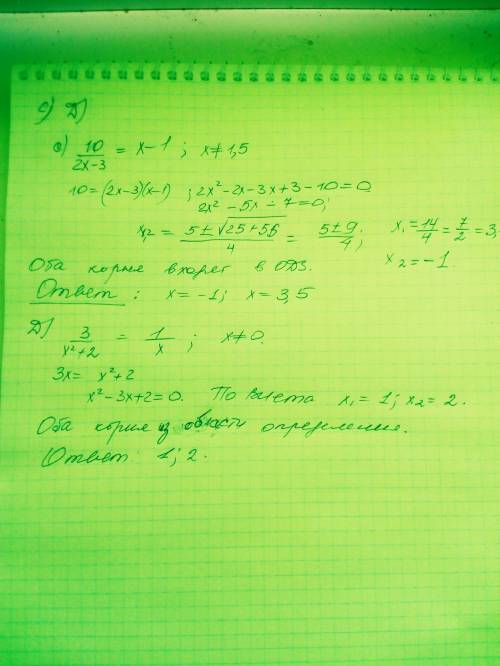 с) Д)
с) 10/(2x-3) = x-1 ; x≠1,5
10=(2x-3)(x-1) ; 2x²-2x-3x+3-10=0
2x²-5x-7=0;
x₁,₂ = (5±√(25+56))/4 = (5±9)/4; x₁=14/4=7/2=3,
x₂=-1.
Оба корне входят в ОДЗ.
Ответ: x=-1; x=3,5
Д) 3/(x²+2) = 1/x ; x≠0.
3x= x²+2
x²-3x+2=0. По Виета x₁=1; x₂=2.
Оба корне из области определение.
Ответ: 1; 2.